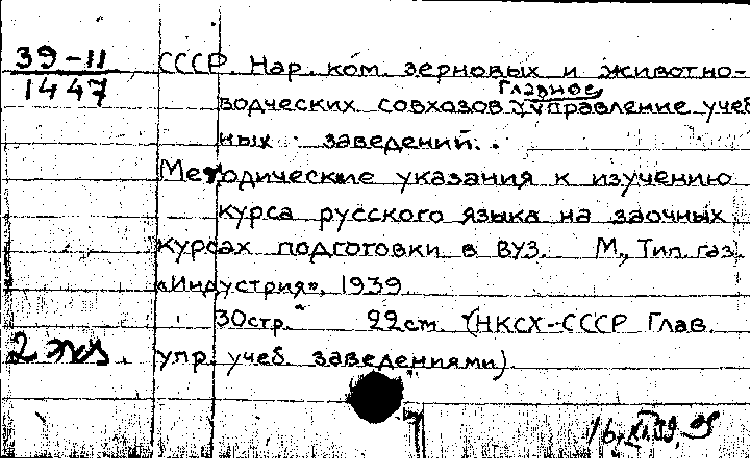 39-11
1447
СССР. Нар. ком. зерновых и животно-
Главное
водческих совхозов. управление учеб
ных заведений.
Методические указания к изучению
курса русского языка на заочных
курсах подготовки в ВУЗ. М., Тип. газ.
«Индустрия», 1939.
30стр. 22см. (НКСХ-СССР Глав.
2 экз. упр. учеб. заведениями)